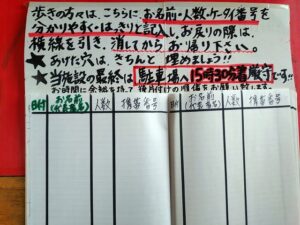 歩きの方々は、こちらに、お名前・人数・ケータイ番号を
分かりやすくはっきりと記入し、お戻りの際は、
横線を引き、消してからお帰り下さい。
★あけた穴は、きちんと埋めましょう!!
★当施設の最終は、駐車場へ15時30分着厳守です!!
お時間に余裕を持って後片付けの準備をお願い致します。
日付 お名前(代表者名) 人数 携番番号 日付 お名前(代表者名) 人数 携番番号